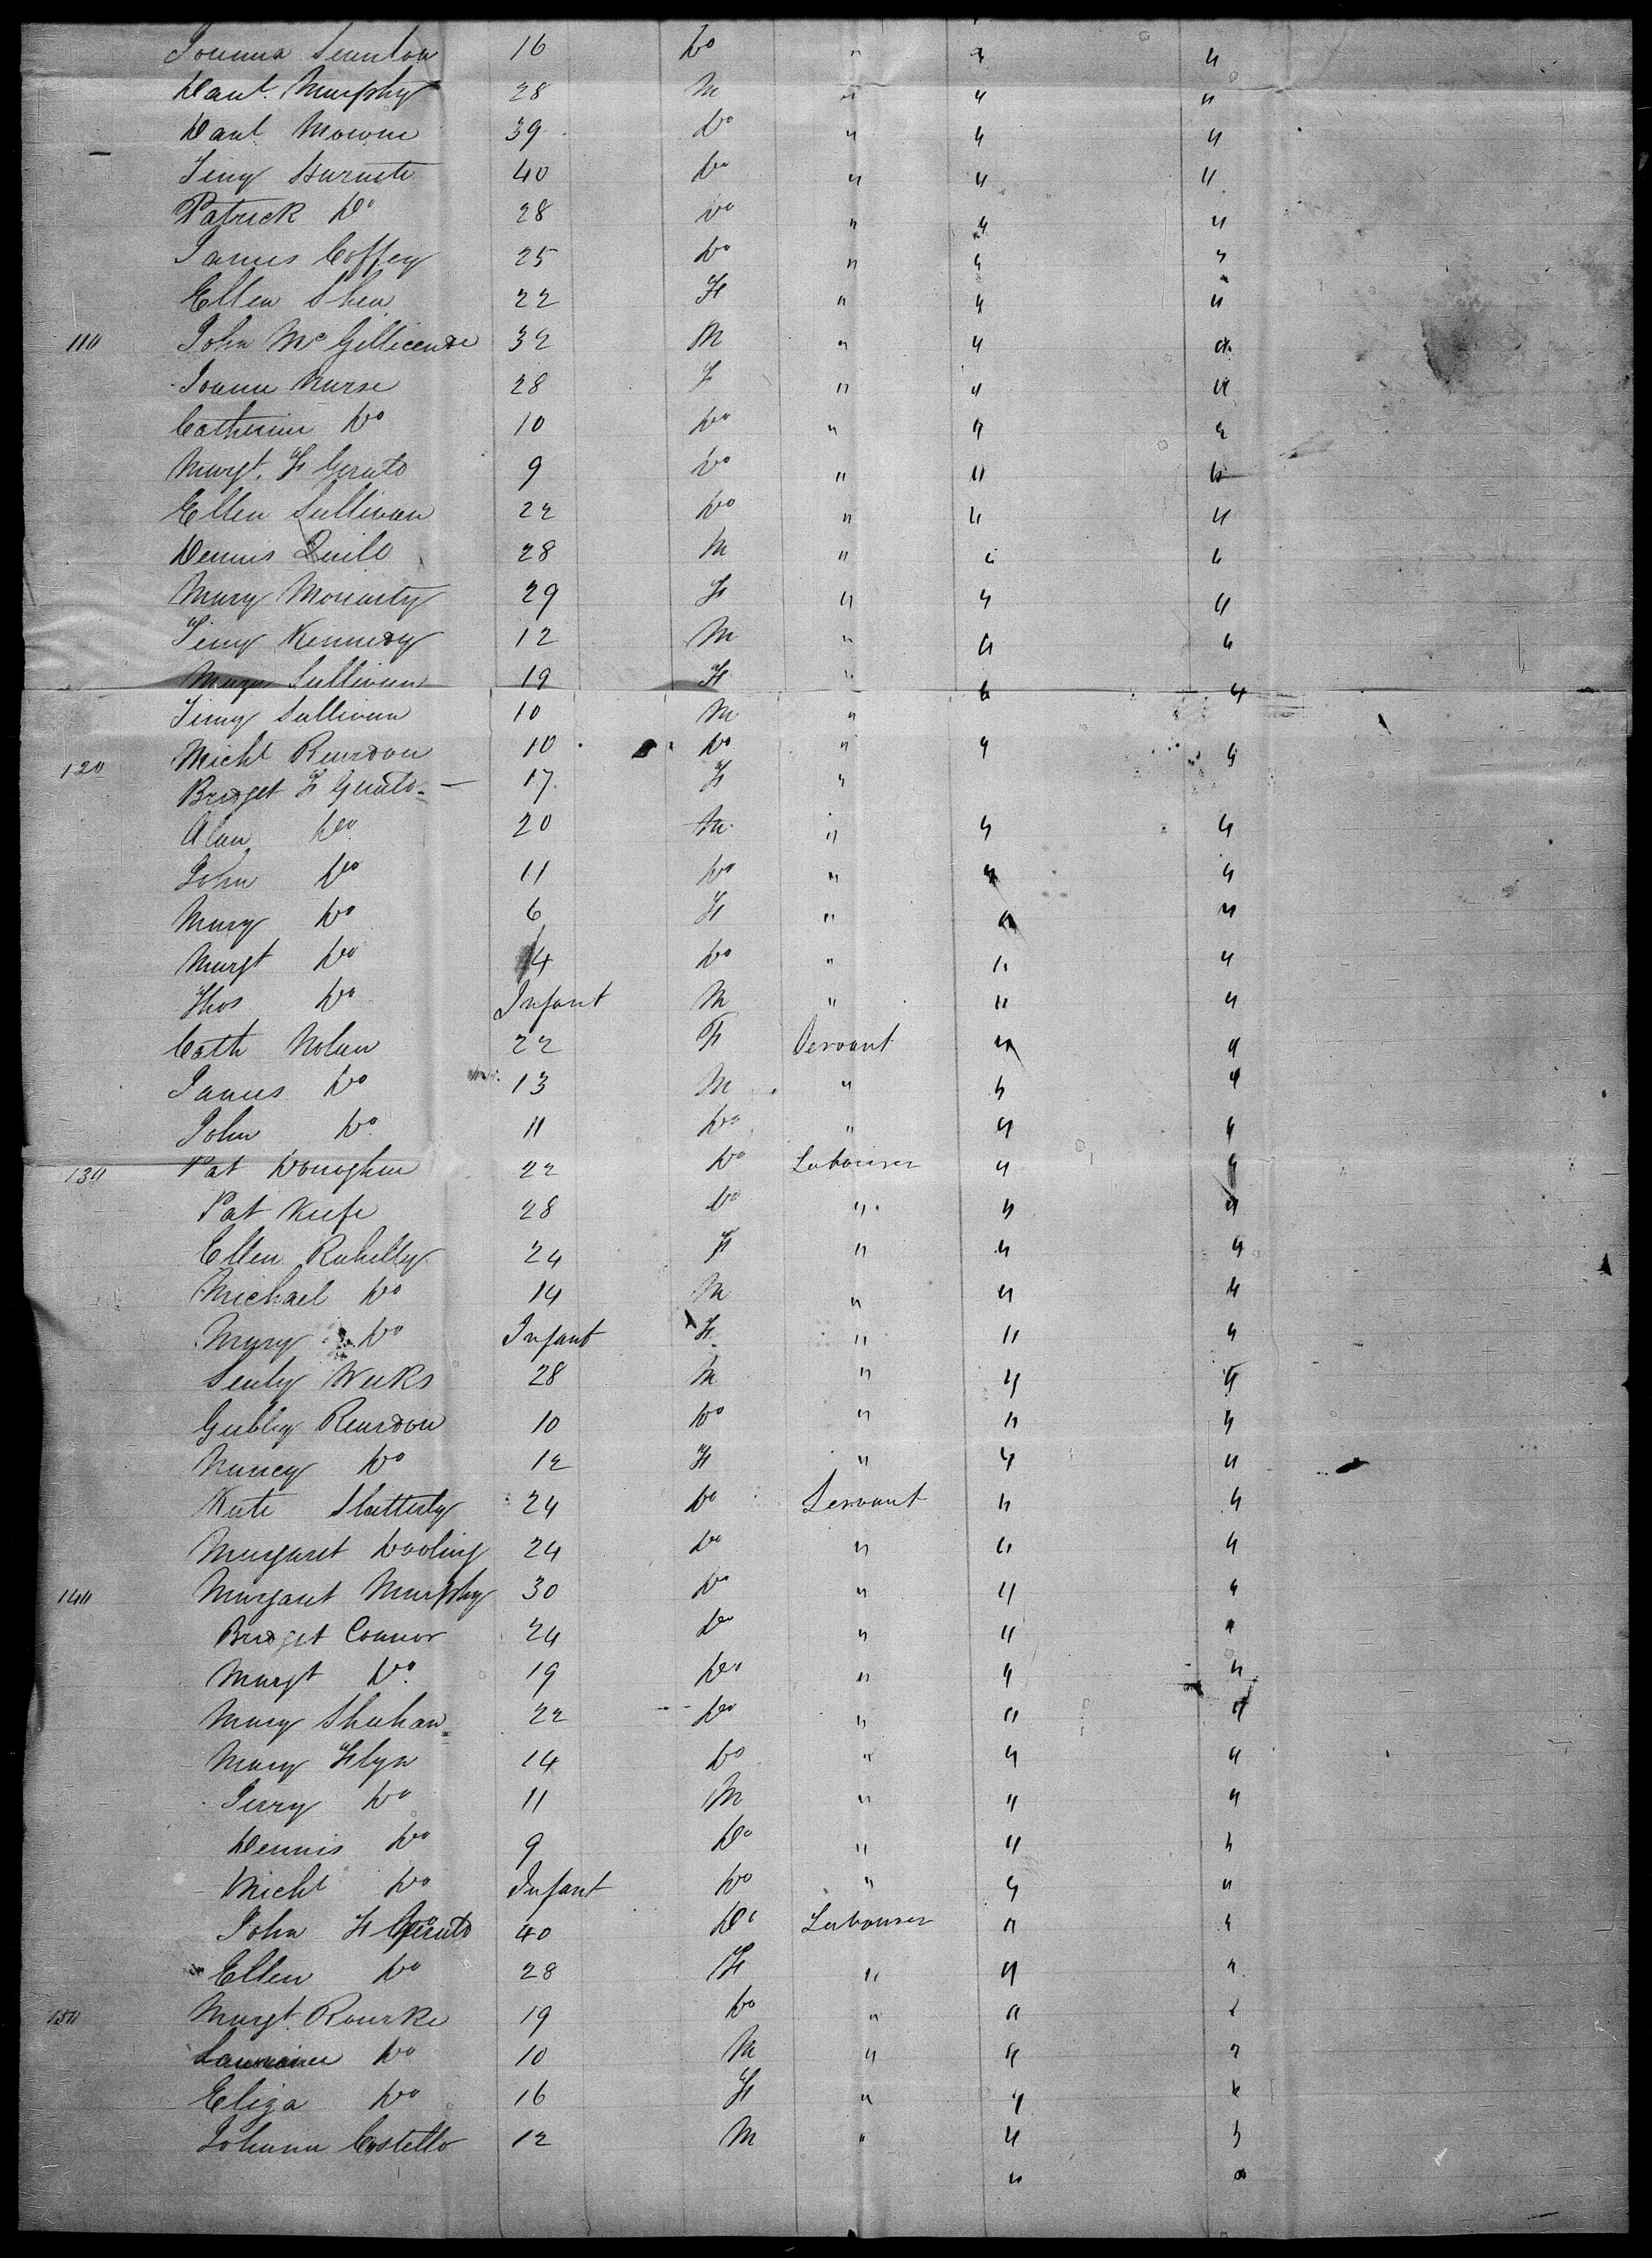 Joanna Scanlon 16 Do " " "
Danl. Murphy 28 M " " "
Danl Morone 39 Do " " "
Timy Harnett 40 Do " " "
Patrick Do 28 Do " " "
James Coffey 25 Do " " "
Ellen Shea 22 F " " "
110 John McGillicende 32 M " " "
Joanna Nurse 28 F " " "
Catherine Do 10 Do " " "
Margt. F Gerald 9 Do " " "
Ellen Sullivan 22 Do " " "
Dennis Quill 28 M " " "
Mary Moriarty 29 F " " "
Timy Kennedy 12 M " " "
Mary Sullivan 19 F " " "
Timy Sullivan 10 M "
Michl Reardon 10 Do " " "
120 Bridget F Gerald 17 F "
Alan Do 20 M " " "
John Do 11 Do " " "
Mary Do 6 F " " "
Margt Do 4 Do " " "
Thos Do Infant M " " "
Cath Nolan 22 F Servant " "
James Do 13 M " " "
John Do 11 Do " " "
130 Pat Donoghue 22 Do Labourer " "
Pat Keefe 28 Do " " "
Ellen Rahilly 24 F " " "
Michael Do 14 M " " "
Mary Do Infant F " " "
Senly Weeks 28 M " " "
Gubby Reardon 10 Do " " "
Nancy Do 12 F " " "
Kate Slatterly 24 Do Servant " "
Margaret Dooling 24 Do " " "
140 Margaret Murphy 30 Do " " "
Bridget Connor 24 Do " " "
Margt Do 19 Do " " "
Mary Shahan 22 Do " " "
Mary Flyn 14 Do " " "
Jerry Do 11 M " " "
Dennis Do 9 Do " " "
Michl Do Infant Do " " "
John F Gerald 40 Do Labourer " "
Ellen Do 28 F " " "
150 Margt. Rourke 19 Do " " "
Do 10 M " " "
Eliza Do 16 F " " "
Johana Costello 12 M " " "
" "